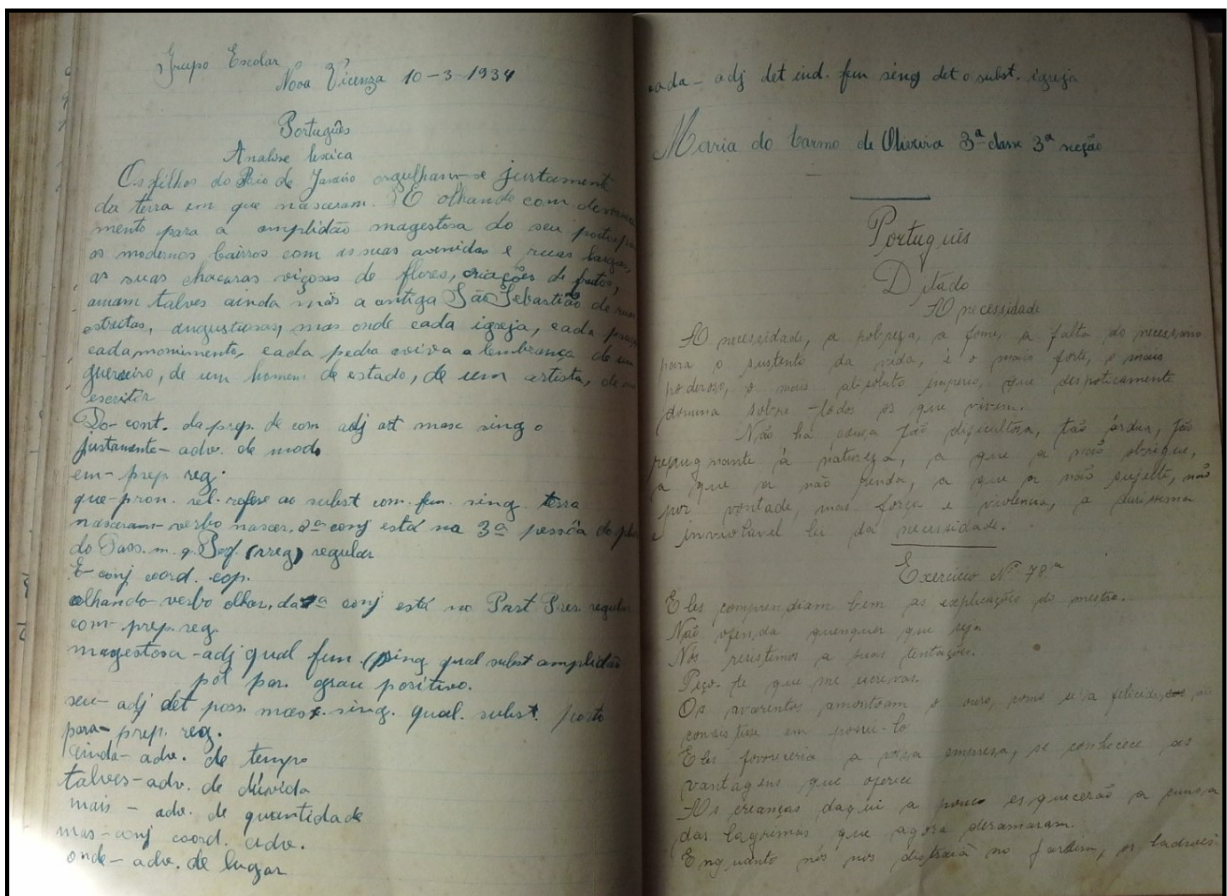 Grupo Escolar
Nova Vicenza 10-3-1934
Português
Analise lexica
Os filhos do Rio de Janeiro orgulham-se justamente
da terra em que nasceram. E olhando com
mento para a amplidão magestosa do seu porto,
os modernos bairros com as suas avenidas e ruas largas,
as suas chacaras viçosas de flores, criações de frutos,
amam talves ainda mais a antiga São Sebastião de ruas
estreitas, angustiosas, mas onde cada igreja, cada praça
cada monimento, cada pedra aviva a lembrança de um
guerreiro, de um homem de estado, de um artista, de um
escritor
Do- cont. da prep. de com adj art masc sing o
justamente- adv. de modo
em- prep reg.
que- pron. rel. refere ao subst com. fem. sing terra
nasceram- verbo nascer. 2ª conj está na 3ª pessôa do plu
do Pass. m. q. Perf (rreg) regular
E- conj coord. cop.
olhando- verbo olhar, da 1ª conj está no Part Pres. regular
com- prep. reg.
magestosa- adj qual fem. sing qual subst amplidão
pol par. grau positivo.
seu- adj det poss. masc. sing. qual. subst. porto
para- prep. reg.
ainda- adv. de tempo
talves- adv. de dúvida
mais - adv. de quantidade
mas- conj coord. adv.
onde- adv. de lugar
cada- adj det ind. fem sing det o subst. igreja
Maria do Carmo de Oliveira 3ª classe 3ª seção
Português
Ditado
A necessidade
A necessidade, a pobreza, a fome, a falta do necessario
para o sustento da vida, é o mais forte, o mais
poderoso, o mais absoluto imperio, que despoticamente
domina sobre todos os que vivem.
Não há cousa tão dificultosa, tão árdua, tão
repugnante á natureza, a que a não obrigue,
a que a não renda, a que a não sujeite, não
por vontade, mas força e violencia, a durissima
e inviolavel lei da necessidade.
Exercicio Nº 78ª
Eles comprendiam bem as explicações do mestre.
Não ofenda quenquer que seja
Nós resistimos a suas tentações.
Peço-te que me escrevas.
Os avarentos amontoam o ouro, como si a felicidade
consistise em possui-lo
Eles favoreceria a vossa empreza, se conhecece as
vantagens que oferece
As crianças daqui a pouco esquecerão a causa
das lagrimas que agora deramaram.
Enquanto nós nos distraiá no jardim, os ladrões